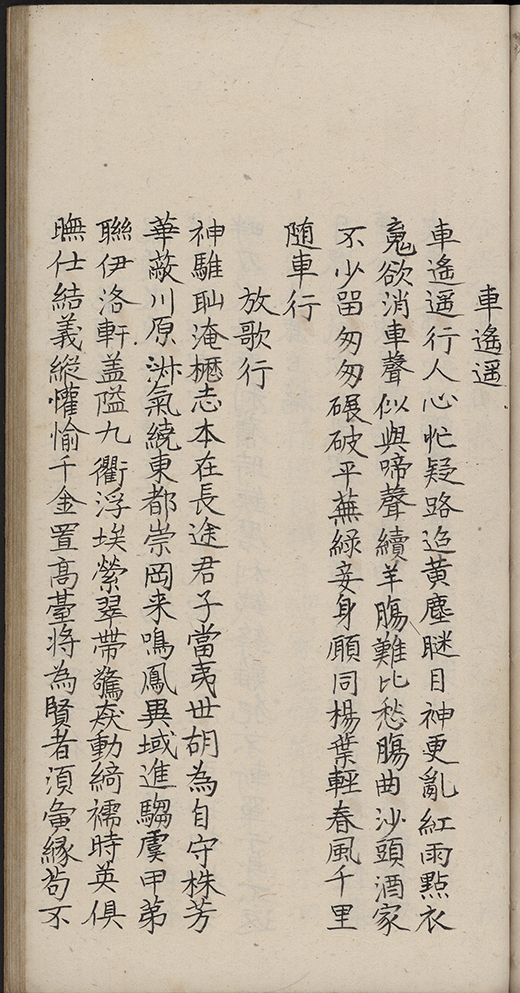 車遙遙
車遙遙行人心忙疑路迢黃塵瞇目神更亂紅雨點衣
䰟欲消車聲似與啼聲續羊腸難比愁腸曲沙頭酒家
不少留匆匆碾破平蕪綠妾身願同楊葉輕春風千里
隨車行
放歌行
神騅耻淹櫪志本在長途君子當夷世胡為自守株芳
華蔽川原淋氣繞東都崇岡来鳴鳳異域進騶虞甲第
聯伊洛軒盖隘九衢浮埃縈翠帶驚猋動綺襦時英俱
膴仕結義縱懽愉千金置高臺将為賢者湏夤緣苟不